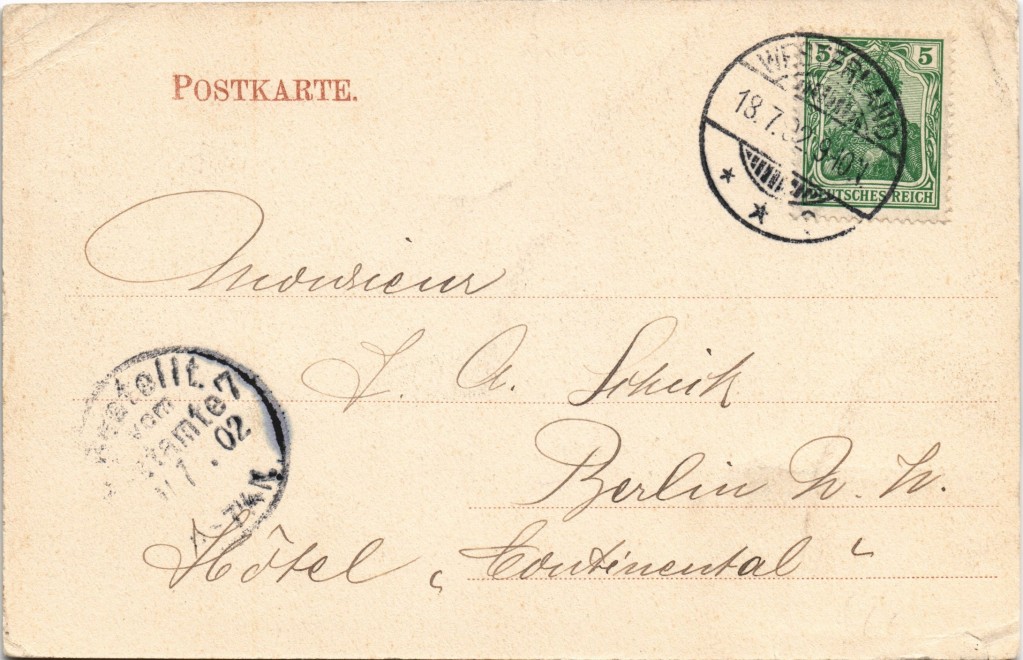 POSTKARTE.
WESTERLAND
18.7.02 8-10 V.
5 5
DEUTSCHES REICH
Monsieur
J. A. Schick
Berlin N. W.
Hôtel „Continental“
Bestellt
vom
Postamte 7
7. 02